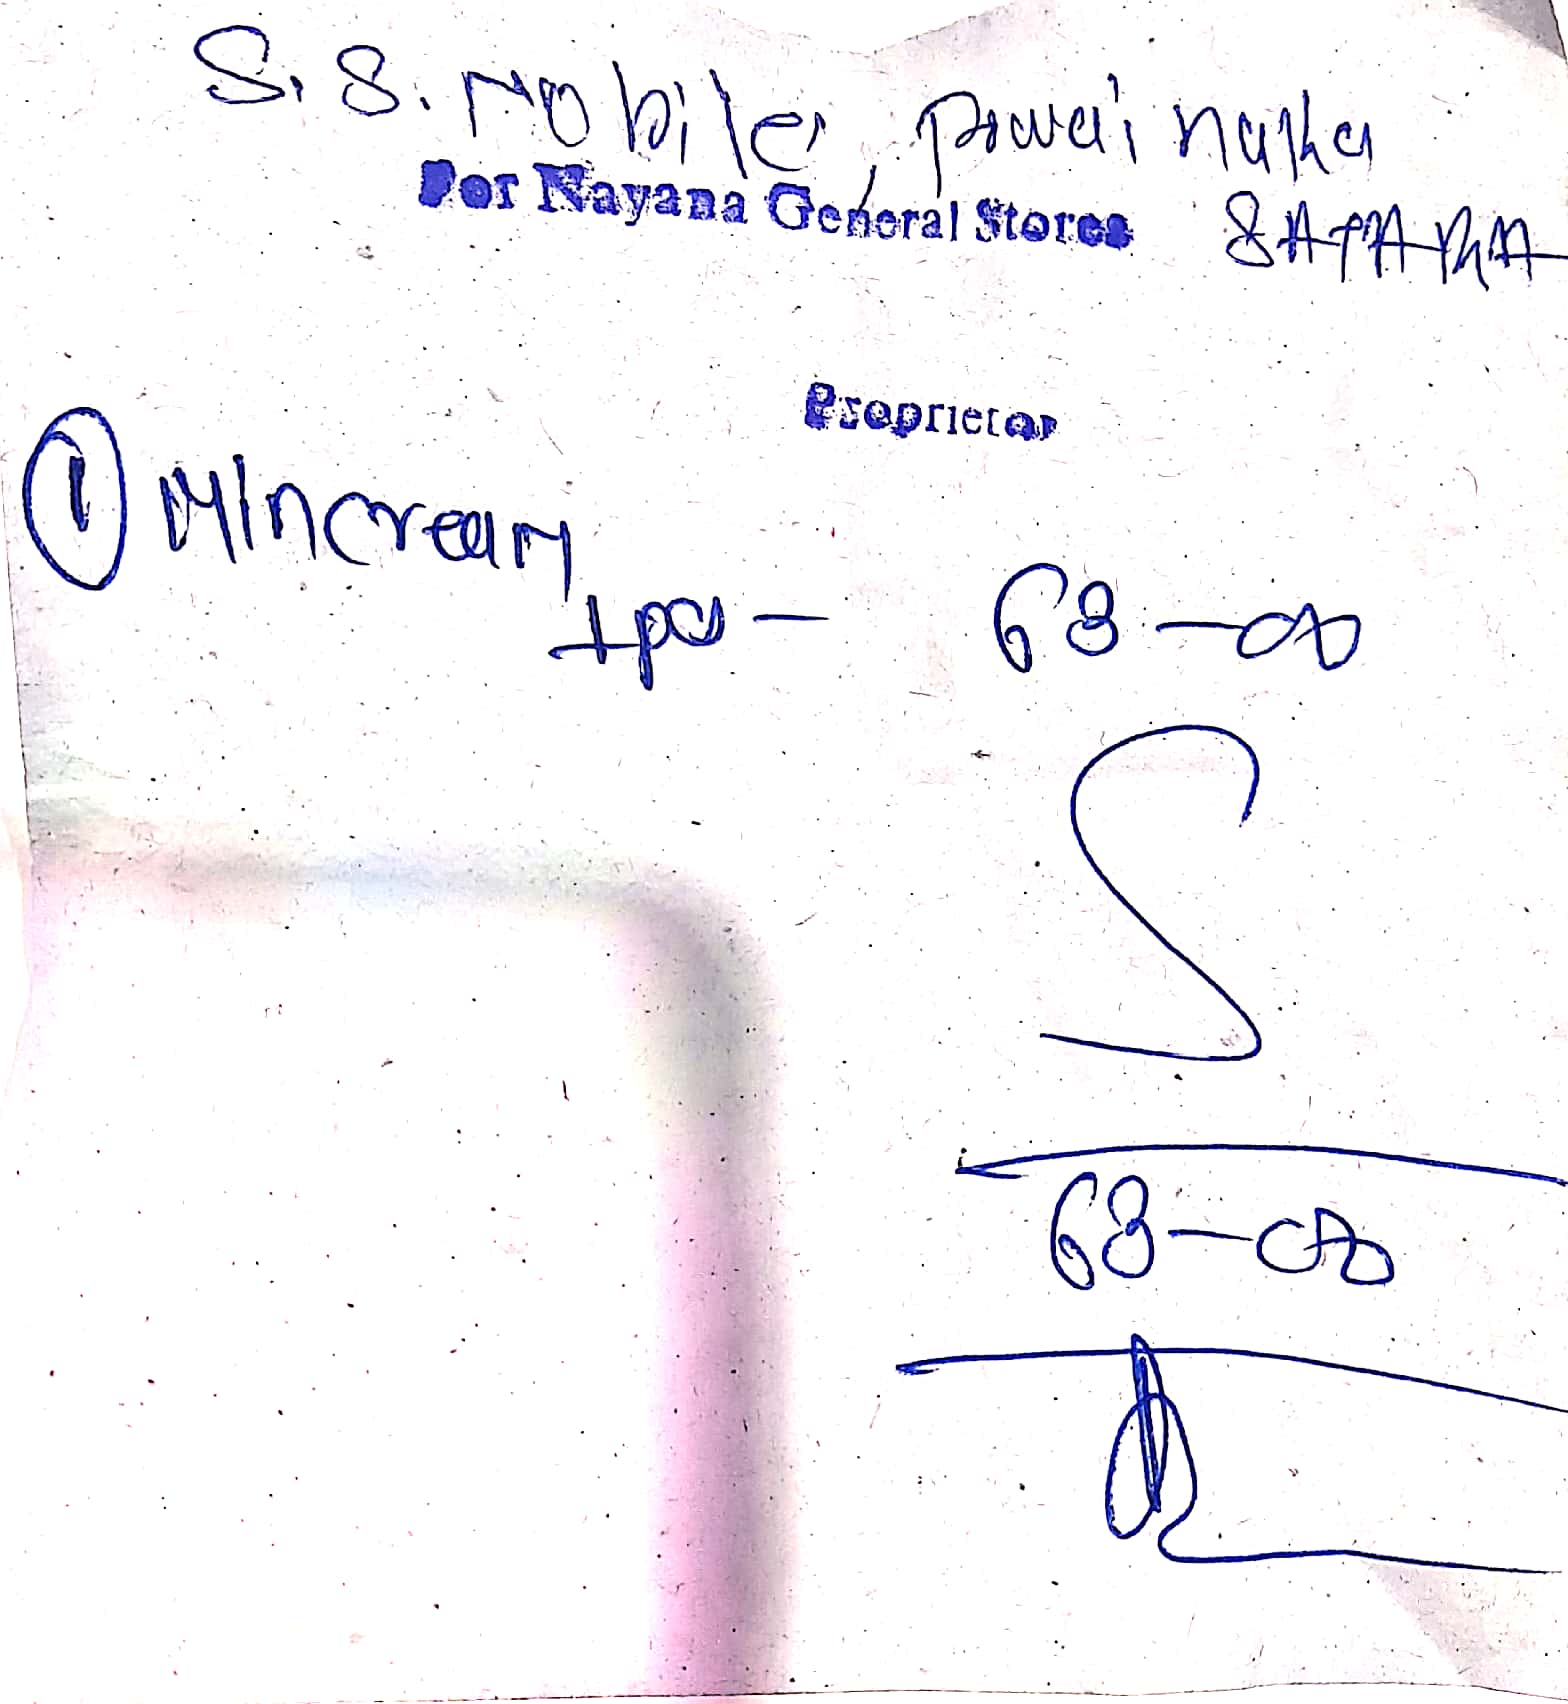 S. S. Mobile, powai naka
For Nayana General Stores
SATARA
Proprietor
① Mincream
1 pcs — 68 — 00
68 — 00